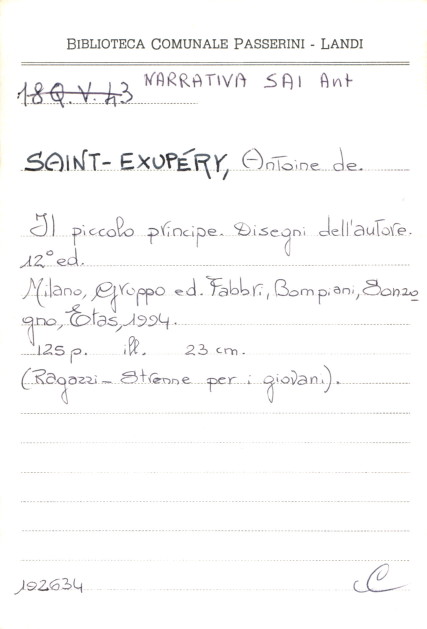 BIBLIOTECA COMUNALE PASSERINI - LANDI
18 Q. V. 43 NARRATIVA SAI Ant
SAINT-EXUPÉRY, Antoine de.
Il piccolo principe. Disegni dell'autore.
12° ed.
Milano, Gruppo ed. Fabbri, Bompiani, Sonzo
gno, Etas, 1994.
125 p. ill. 23 cm.
(Ragazzi - Strenne per i giovani).
192634 C